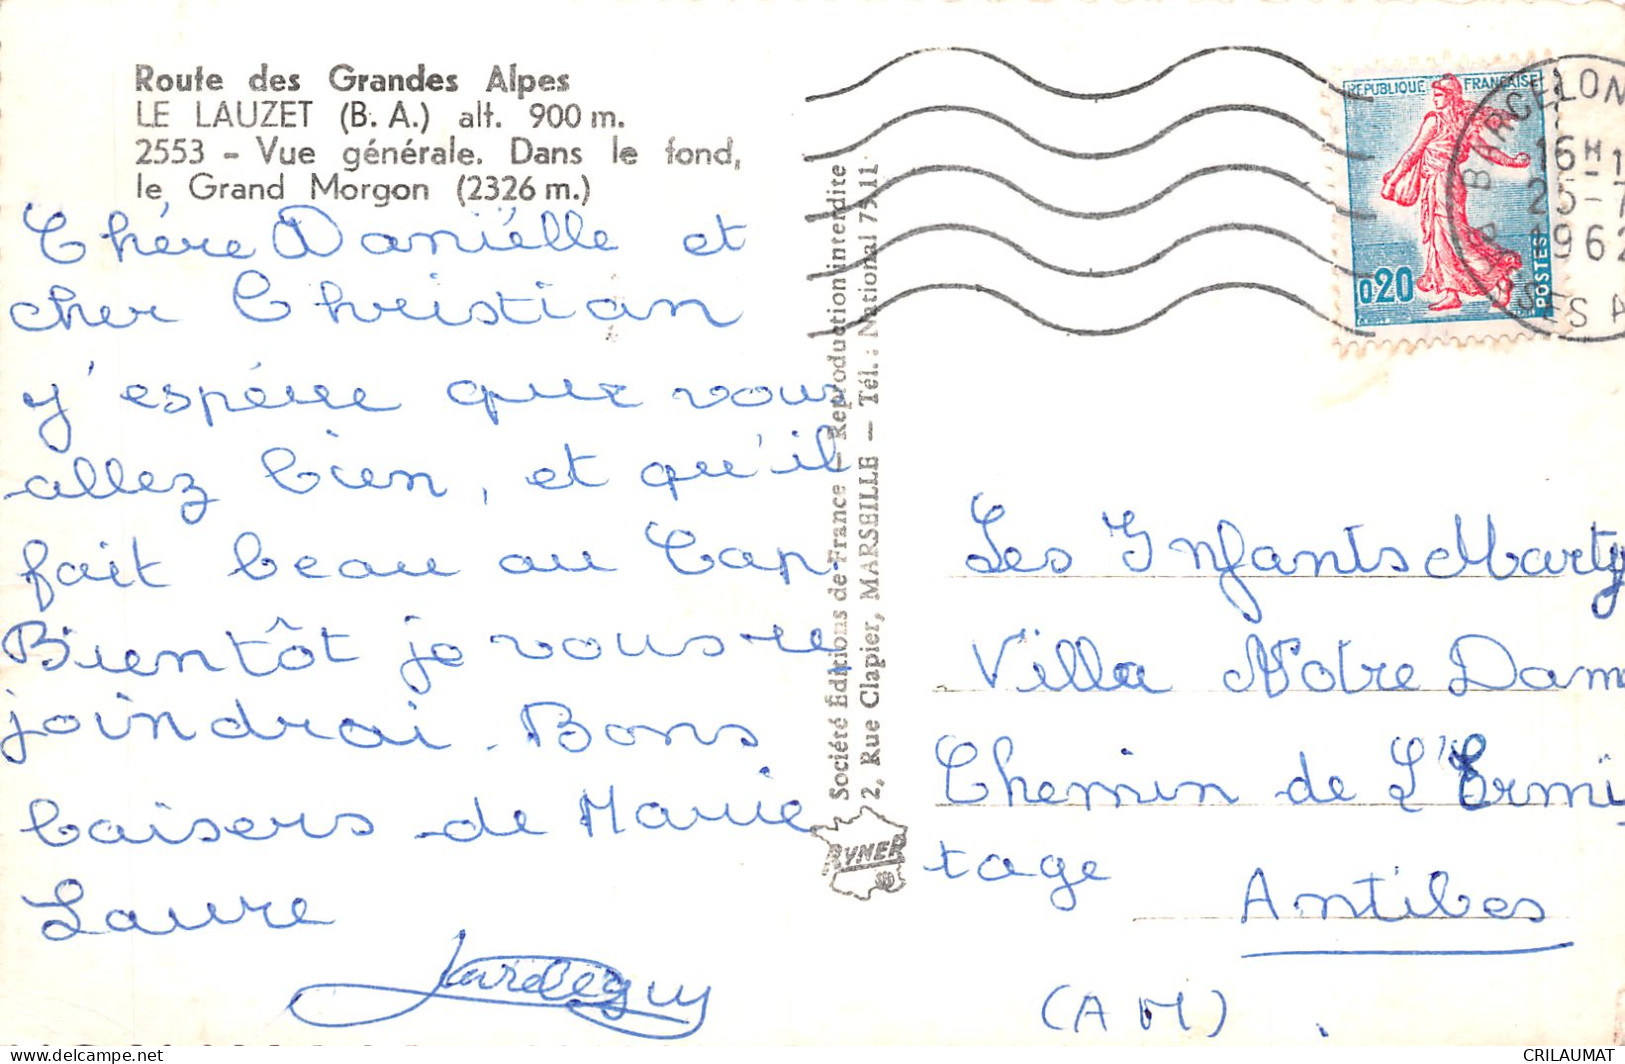 Route des Grandes Alpes
LE LAUZET (B. A.) alt. 900 m.
2553 - Vue générale. Dans le fond,
le Grand Morgon (2326 m.)
Chére Daniélle et
cher Christian
j'espére que vous
allez bien, et qu'il
fait beau au Cap.
Bientôt je vous re
joindrai. Bons
baisers de Marie
Laure
Société Editions de France - Reproduction interdite
2, Rue Clapier, MARSEILLE — Tél.: National 75-11
RYNER
REPUBLIQUE FRANÇAISE
0,20
POSTES
BARCELON
16H1
25-7
1962
ES A
Les Infants Marty
Villa Notre Dam
Chemin de L'Ermi
tage
Antibes
(AM)
CRILAUMAT